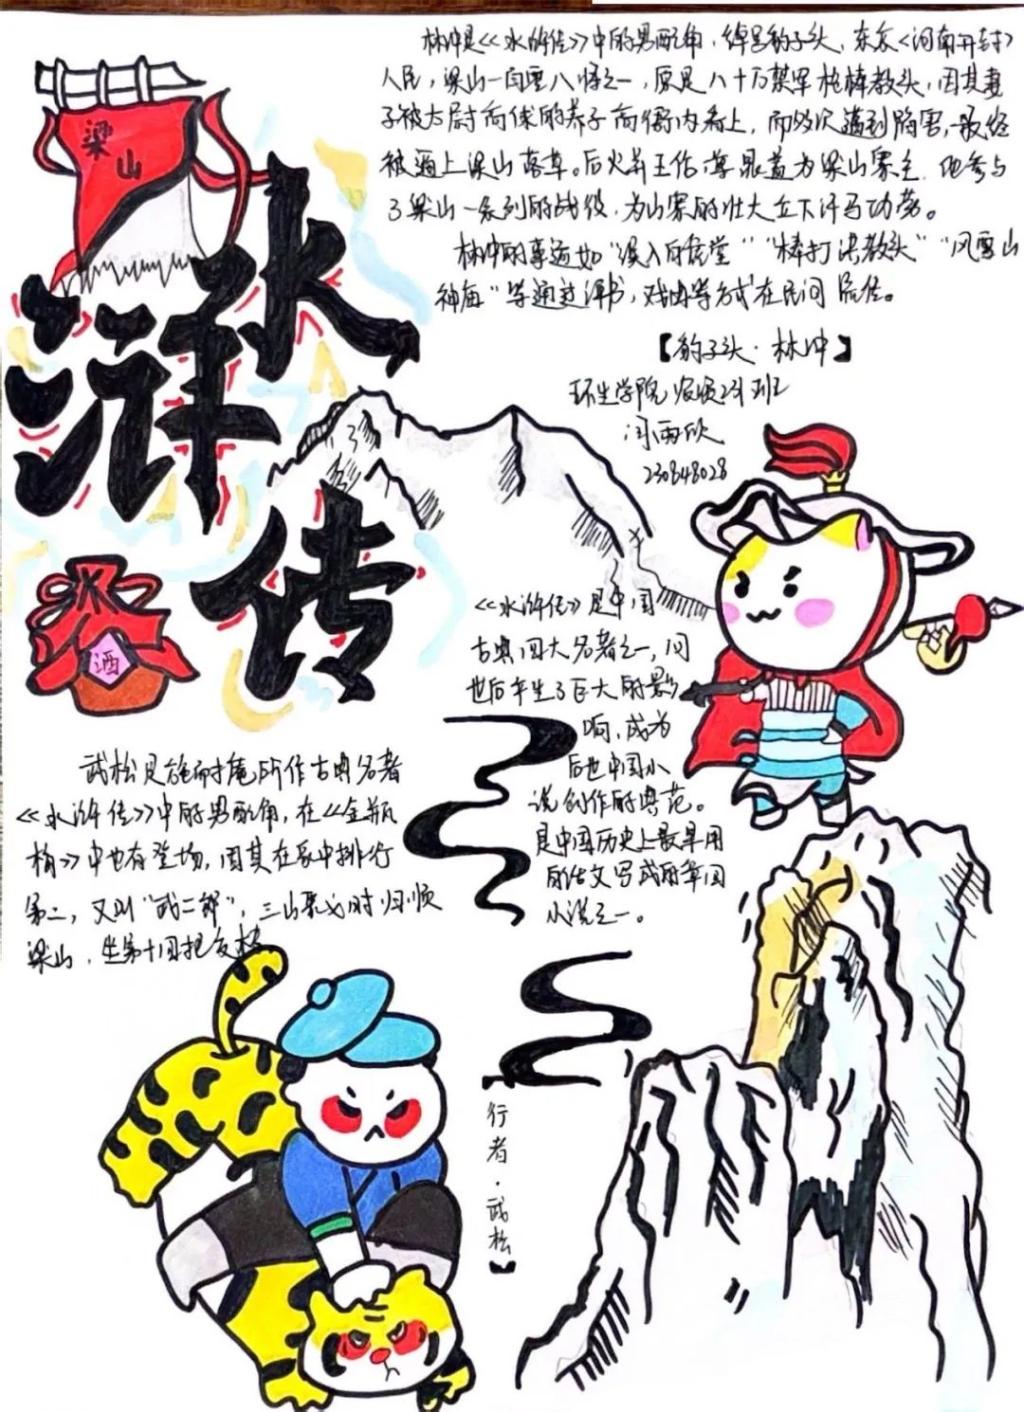 梁
山
水
浒
传
酒
林冲是《水浒传》中的男配角,绰号豹子头,东京(河南开封)
人氏,梁山一百零八将之一,原是八十万禁军枪棒教头,因其妻
子被太尉高俅的养子高衙内看上,而多次遭到陷害,最终
被逼上梁山落草。后火并王伦,尊晁盖为梁山寨主,他参与
了梁山一系列的战役,为山寨的壮大立下汗马功劳。
林冲的事迹如“误入白虎堂”“棒打洪教头”“风雪山
神庙”等通过评书,戏曲等方式在民间流传。
【豹子头·林冲】
环生学院 231班
闫雨欣
230848028
《水浒传》是中国
古典四大名著之一,问
世后产生了巨大的影
响,成为
后世中国小
说创作的典范。
是中国历史上最早用
白话文写成的章回
小说之一。
武松是施耐庵所作古典名著
《水浒传》中的男配角,在《金瓶
梅》中也有登场,因其在家中排行
第二,又叫“武二郎”,三山聚义时归顺
梁山,坐第十四把交椅
【行者·武松】